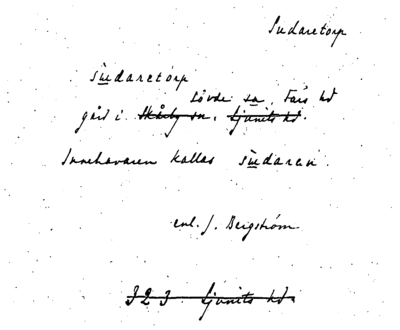 Sudaretorp
sudaretorp
Lövde sn, Färs hd
gård i Skårby sn, Ljunits hd.
Innehavaren kallas sudaren.
enl. J. Bergström
323 Ljunits hd.